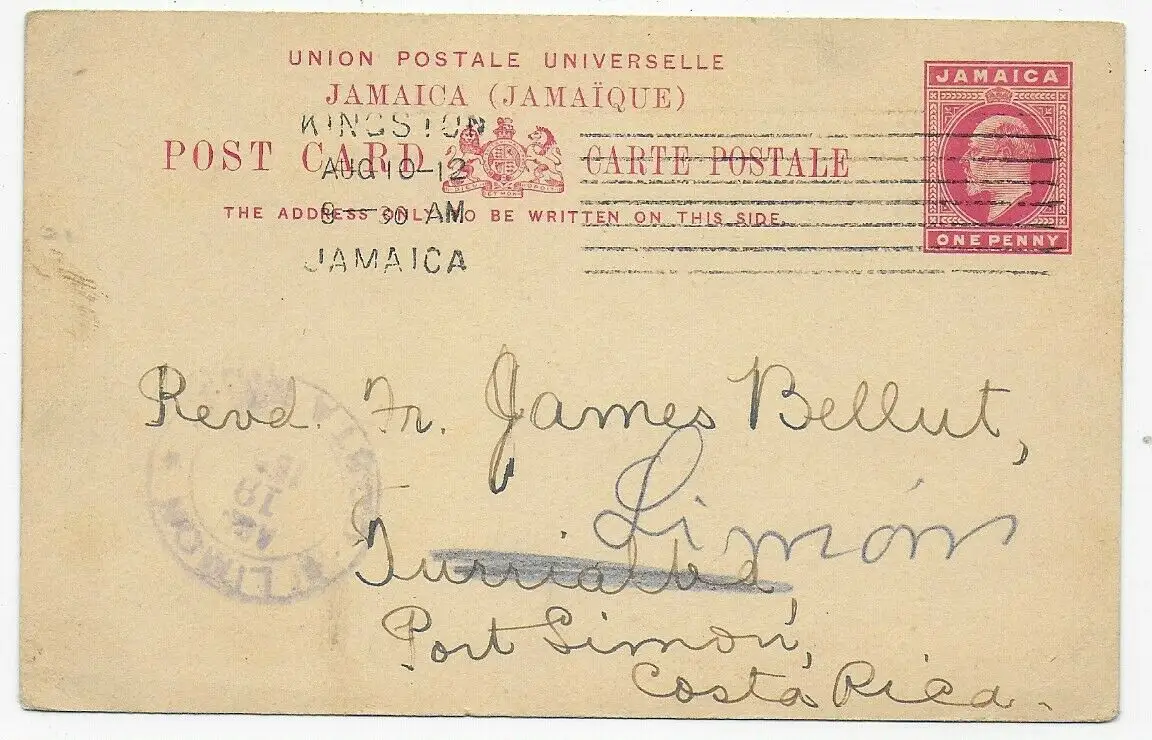 UNION POSTALE UNIVERSELLE
JAMAICA (JAMAÏQUE)
POST CARD CARTE POSTALE
THE ADDRESS ONLY TO BE WRITTEN ON THIS SIDE.
JAMAICA
ONE PENNY
KINGSTON
AUG 10-12
8-30 AM
JAMAICA
Revd. Fr. James Bellut,
Limón
Turrialba,
Port Limon,
Costa Rica.
LIMON
18